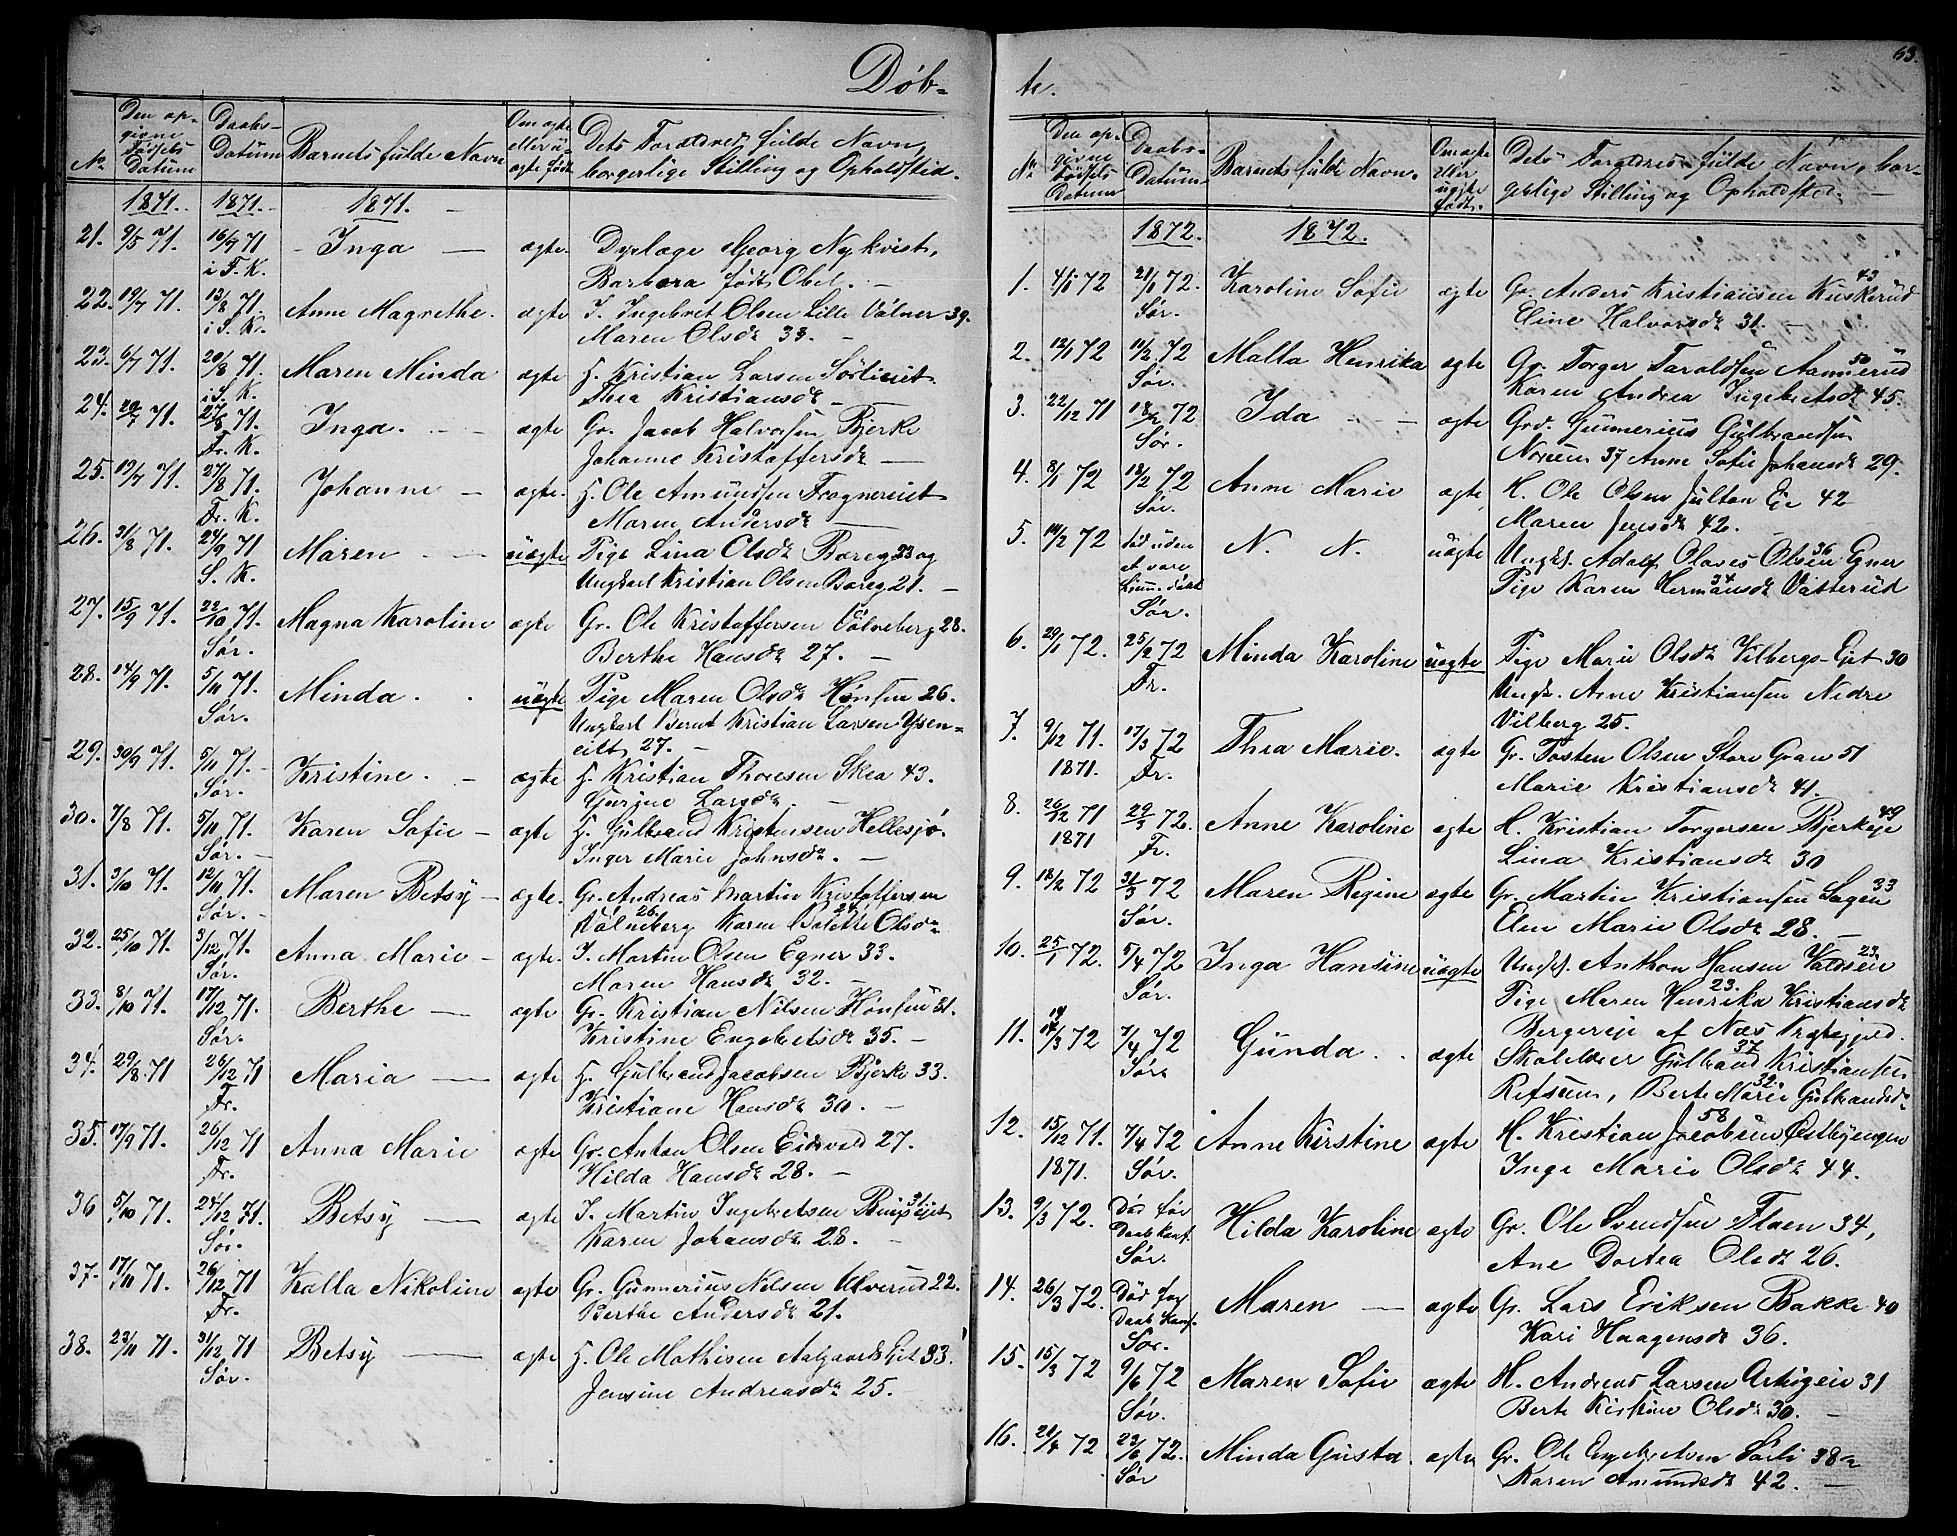 Døb-
No
Den op-
givne
Fødsels
Datum
Daabs-
Datum
Barnets fulde Navn
Om ægte
eller u-
ægte født
Dets Forældres fulde Navn,
borgerlige Stilling og Opholdsted.
1871. 1871. 1871.
21. 9/5 71. 16/7 71 Inga ægte. Dyrlæge Georg Nykvist,
i F. K. Barbara født Obel.
22. 19/7 71. 13/8 71. Anne Magrethe. ægte I. Ingebret Olsen Lille Vølner 39.
i S. K. Maren Olsdr 33.
23. 6/7 71. 20/8 71. Maren Minda ægte H. Kristian Larsen Sørlieiet
i S. K. Thea Kristiansdr
24. 20/7 71. 27/8 71. Inga. ægte Gr. Jacob Halvorsen Bjerke
Fr. K. Johanne Kristoffersdr
25. 19/7 71. 27/8 71. Johanne ægte. H. Ole Amundsen Frognereiet
Fr. K. Maren Andersdr
26. 31/8 71. 24/9 71 Maren uægte Pige Lina Olsdr Bareg 23 og
S. K. Ungkarl Kristian Olsen Bareg 21.
27. 15/9 71. 22/10 71. Magna Karoline ægte Gr. Ole Kristoffersen Vølneberg 28.
Sør. Berthe Hansdr 27.
28. 14/9 71. 5/11 71. Minda. uægte Pige Maren Olsdr Hønsen 26.
Sør. Ungkarl Bernt Kristian Larsen Ysen-
eilt 27.
29. 30/9 71. 5/11 71. Kristine. ægte H. Kristian Thoresen Skea 43.
Sør. Gurine Larsdr.
30. 7/8 71. 5/11 71. Karen Sofie ægte H. Gulbrand Kristensen Hellesjø.
Sør. Inger Marie Johnsdr.
31. 3/10 71. 12/11 71. Maren Betsy ægte. Gr. Andreas Martin Kristoffersen
Sør. Vølneberg 26. Karen Olsdr
32. 25/10 71. 3/12 71. Anna Marie ægte. I. Martin Olsen Egner 33.
Sør. Maren Hansdr 32.
33. 8/10 71. 17/12 71. Berthe ægte Gr. Kristian Nilsen Hønsen 31.
Sør. Kristine Engebretsdr 35.
34. 29/8 71 26/12 71 Maria ægte H. Gulbrand Jacobsen Bjerke 33.
Fr. Kristiane Hansdr 30.
35. 17/9 71. 26/12 71 Anna Marie ægte Gr. Anton Olsen Eidsvold 27.
Fr. Hilda Hansdr 28.
36 5/10 71. 24/12 71. Betsy ægte I. Martin Ingebretsen
Sør. Karen Johansdr 28.
37. 17/11 71. 26/12 71 Kalla Nikoline ægte Gr. Gunnerius Nilsen Ulverud 22.
Fr. Berthe Andersdr 21.
38. 23/11 71. 31/12 71 Betsy ægte H. Ole Mathisen Aalgaards Eiet 33.
Sør. Jensine Andreasdr 25.
te.
63.
No
Den op-
givne
Fødsels
Datum
Daabs-
Datum
Barnets fulde Navn.
Om ægte
eller
uægte
født.
Dets Forældres fulde Navn, bor-
gerlige Stilling og Opholdsted.
1872. 1872.
1. 4/1 72 21/1 72. Karoline Sofie ægte Gr. Anders Kristiansen Kuskerud 43
Sør. Eline Halvorsdr 31.
2. 12/1 72 11/2 72 Malla Henrika ægte Gr. Torger Taraldsen Aamerud 50
Sør. Karen Andrea Ingebretsdr 45.
3. 22/12 71 18/2 72 Ida ægte Grd. Gunnerius Gulbrandsen
Sør. Noruen 37 Anne Sofie Johansdr 29.
4. 8/1 72 18/2 72 Anne Marie ægte H. Ole Olsen Julton Eie 42
Sør. Maren Jensdr 42.
5. 14/2 72 død uden N. N. uægte Ungk. Adolf Olaves Olsen 36 Egner
at være Pige Karen Hermansdr 34 Vatterud
hjem. døbt
Sør.
6. 29/1 72. 25/2 72 Minda Karoline uægte Pige Marie Olsdr Vilbergs-Eiet 30
Fr. Ungk. Arne Kristiansen Nedre
Vilberg 25.
7. 9/12 71. 17/3 72 Thea Marie. ægte Gr. Tosten Olsen Store Gran 51
1871. Fr. Marie Kristiansdr 41.
8. 26/12 71 29/3 72. Anne Karoline ægte H. Kristian Torgersen Bjerkeje 49
1871 Fr. Lina Kristiansdr 30
9. 18/2 72 31/3 72 Maren Regine ægte Gr. Martin Kristiansen Sagen 33
Sør. Elen Marie Olsdr 28.
10. 25/1 72. 5/4 72 Inga Hansine uægte Ungk. Anthon Hansen 23
Sør. Pige Maren Henrika 23. Kristiansdr
Bergereje af Næs Præstegjeld.
11. 14/3 72 7/4 72 Gunda. ægte Skolelærer Gulbrand 37 Kristiansen
Sør. Refsum, Berte Marie 32. Gulbrandsdr
12. 15/12 71. 7/4 72 Anne Kirstine ægte H. Kristian Jacobsen 58 Østbyengen
1871. Sør. Inge Marie Olsdr 44.
13. 9/3 72. Død før Hilda Karoline ægte Gr. Ole Svendsen Flaen 34,
Daab Kast.
Sør. Ane Dortea Olsdr 26.
14. 26/3 72. Død før Maren ægte Gr. Lars Eriksen Bakke 40
Daab Kast.
Sør. Kari Haagensdr 36.
15. 15/3 72 9/6 72 Maren Sofie ægte H. Andreas Larsen 31
Sør. Berte Kirstine Olsdr 30.
16. 28/4 72 23/6 72. Minda Gusta. ægte Gr. Ole Engebretsen Sørli 38
Sør Karen Amundsdr 42.